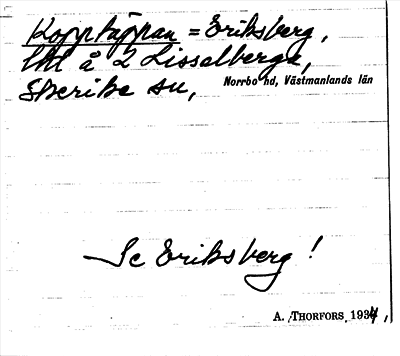 Kopptäppan = Eriksberg,
lht å 2 Lisselberga,
Skerike sn,
Norrbo hd, Västmanlands län
Se Eriksberg!
A. THORFORS, 1934,